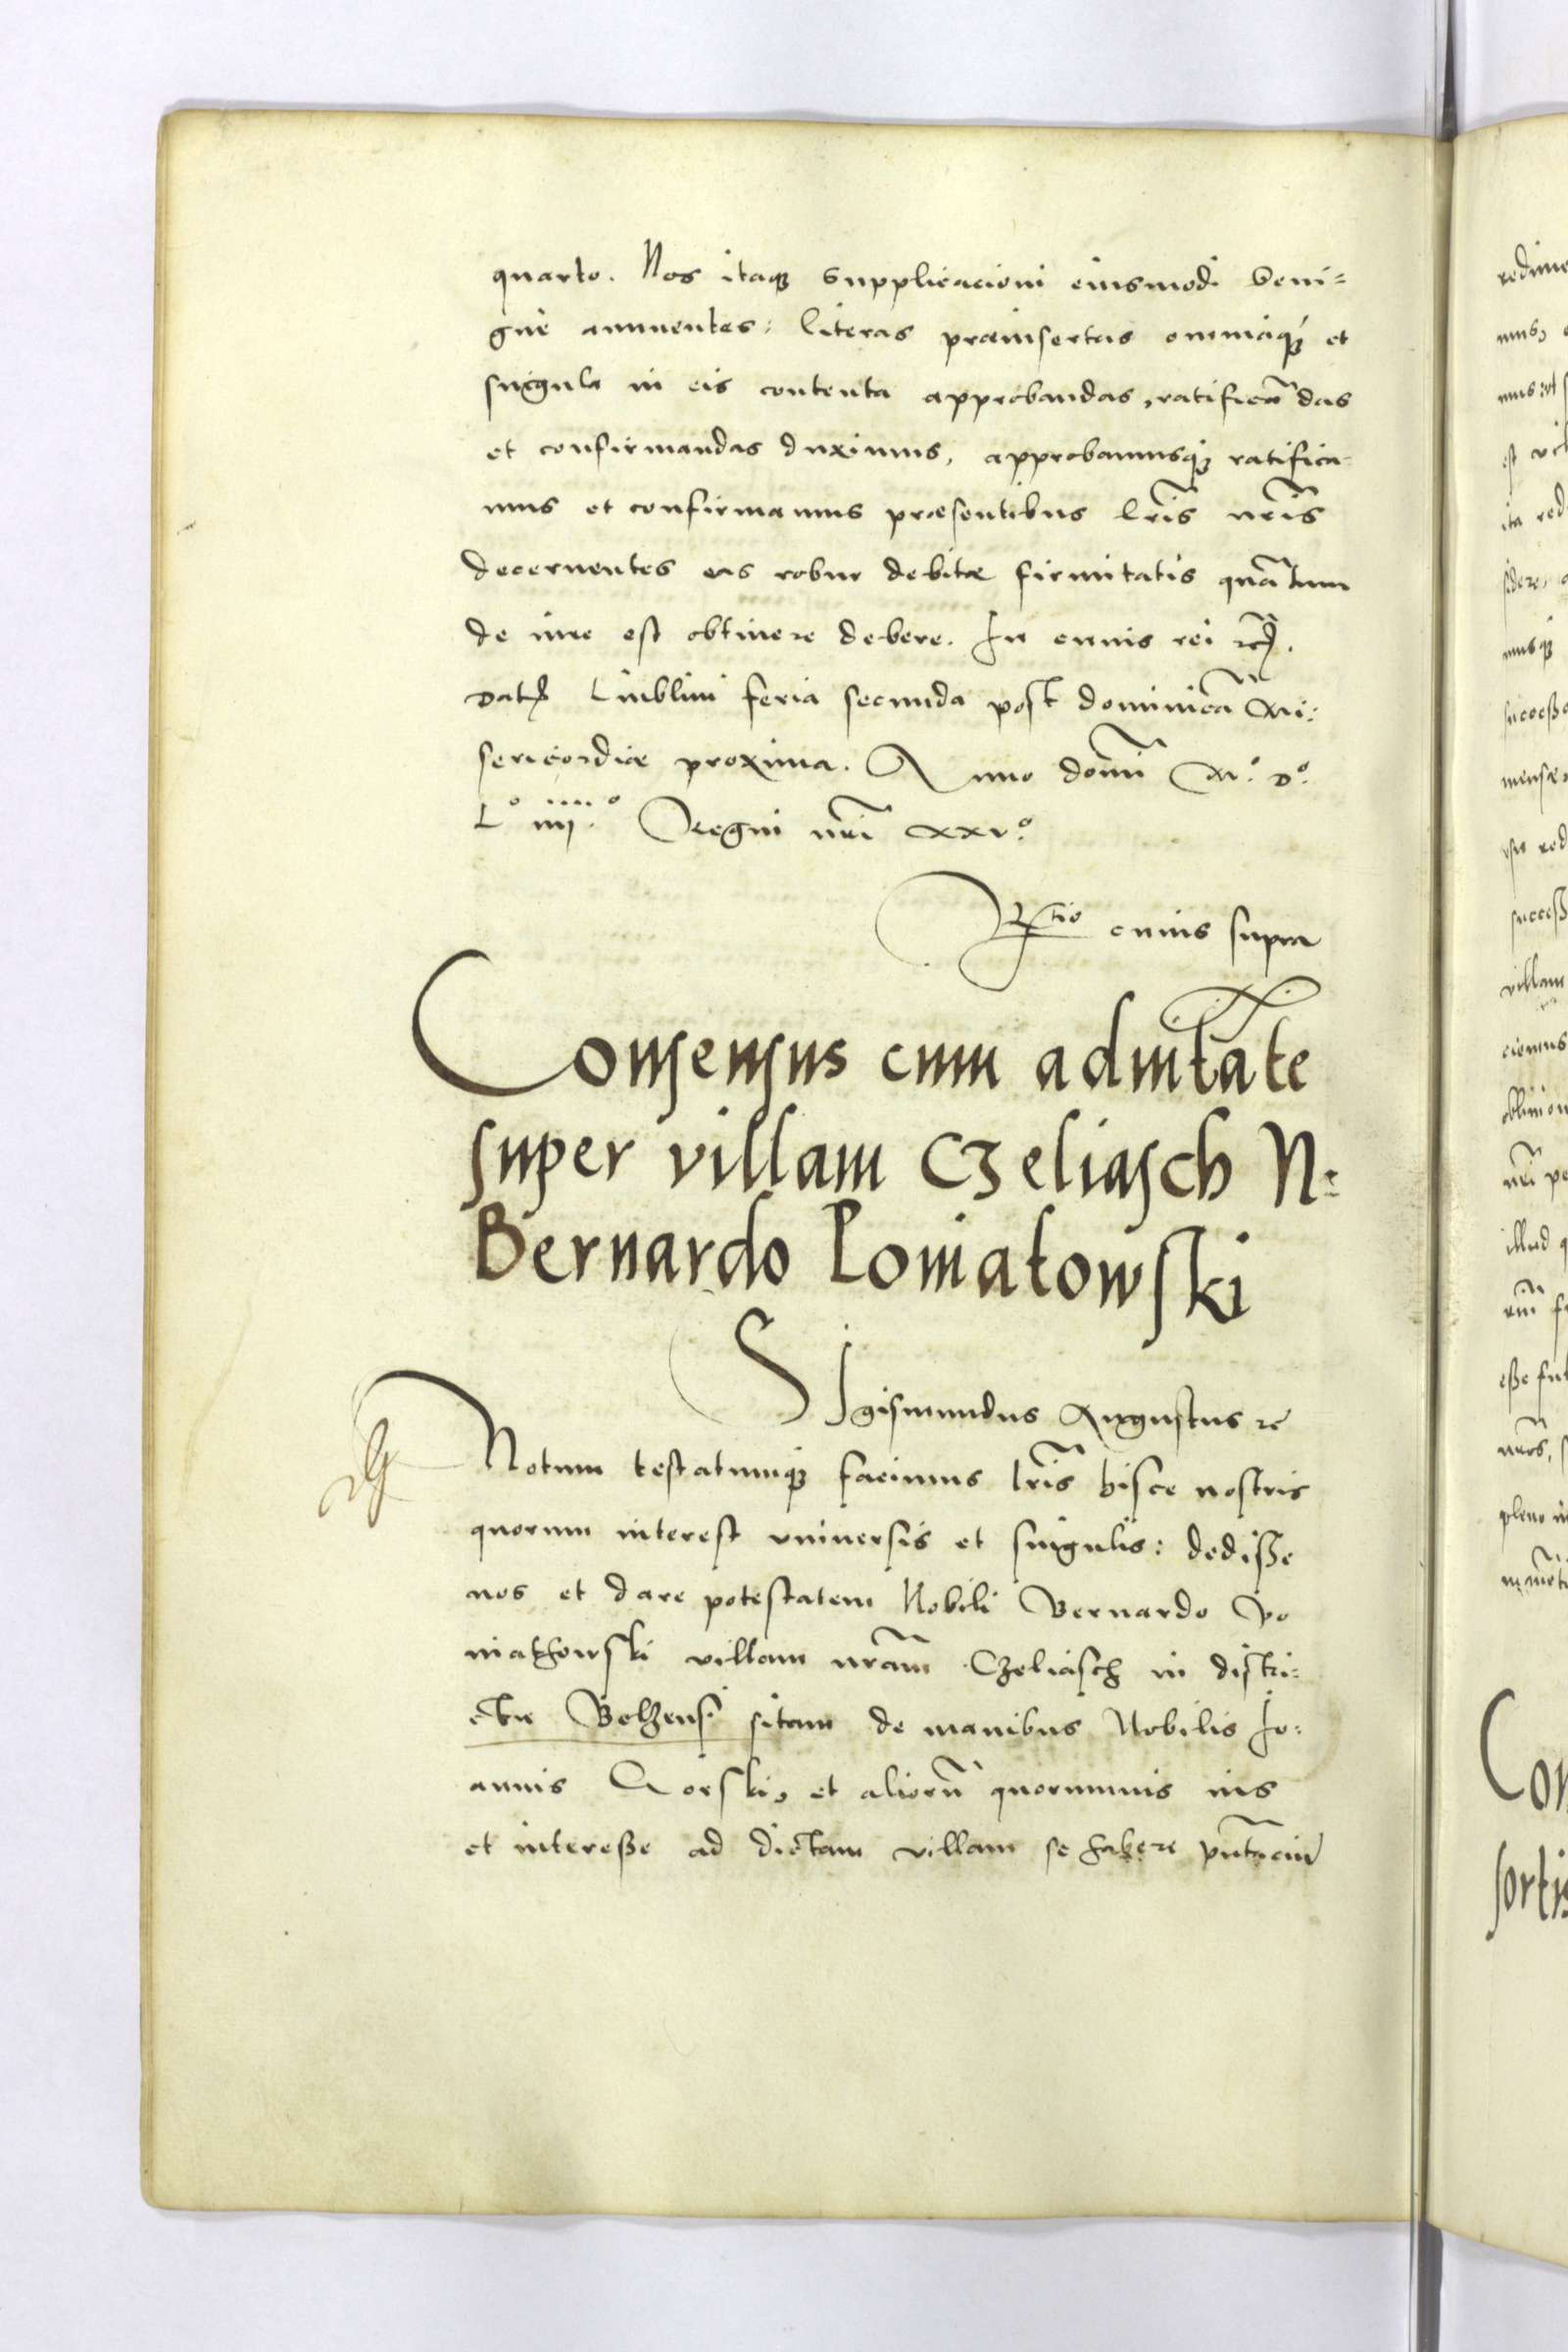 quarto. Nos itaq₃ supplicacioni eiusmodi beni=
gnè annuentes: literas præinsertas omniaq₃ et
singula in eis contenta approbandas, ratificādas
et confirmandas duximus, approbamusq₃ ratifica
mus et confirmamus præsentibus lr̄is nr̄is
decernentes eas robur debitæ firmitatis quātum
de iure est obtinere debere. In cuius rei
Datꝭ Liublini feria secunda post dominicā Mi:
sericordiæ proxima. Anno domī M.º D.º
L.º iiij.º Regni nr̄i xxv.º
R̄tio cuius supra
Consensus cum aduitāte
super villam Czeliasch N:
Bernardo Poniatowski
SIgismundus Augustus rc̄
Notum testatumq₃ facimus lr̄is hisce nostris
quorum interest vniuersis et singulis: dedisse
nos et dare potestatem Nobili Bernardo Po
niathowski villam nr̄am Czeliasch in distri:
ctu Belzensi sitam de manibus Nobilis Jo:
annis Gorski, et aliorū quorumuis ius
et interesse ad dictam villam se habere
redime
mus
mus: et
est
ita red
sidere,
musq₃
successo
mensæ
red
success
villam
ciemus
obliuion
nr̄i pe
illud q
esse fut
nr̄os,
pleno in
Con
sortis